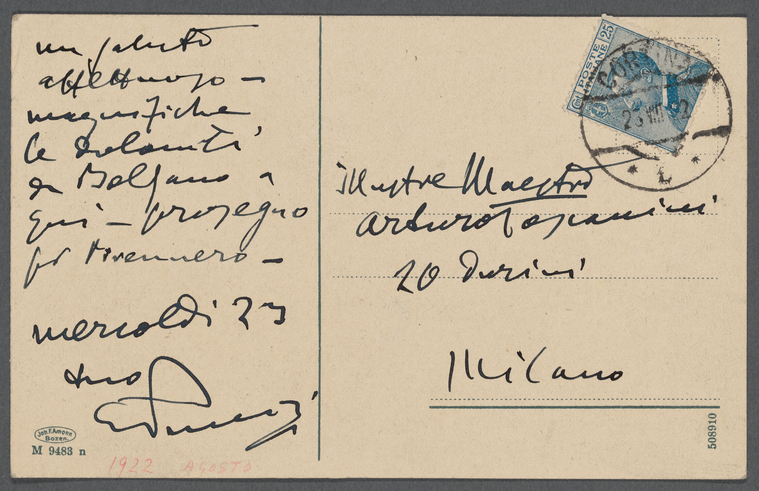 un saluto
affettuoso –
magnifiche
le Dolomiti
da Bolzano a
qui – proseguo
pel Brennero –
mercoldì 23
tuo
1922 AGOSTO
Joh. F. Amonn
Bozen.
M 9483 n
POSTE ITALIANE
CENT 25
23 VIII 22
Illustre Maestro
Arturo Toscanini
20 Durini
Milano
508910